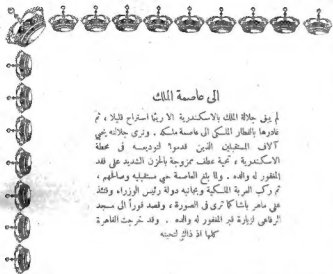 الى عاصمة الملك
لم يبق جلالة الملك بالاسكندرية الا ريثما استراح قليلا ، ثم
غادرها بالقطار الملكى الى عاصمة ملكه . ونرى جلالته يحيي
آلاف المستقبلين الذين قدموا لتوديعه فى محطة
الاسكندرية ، تحية عطف ممزوجة بالحزن الشديد على فقد
المغفور له والده . ولما بلغ العاصمة حيي مستقبليه وصافحهم ،
ثم ركب العربة الملكية وبجانبه دولة رئيس الوزراء وقتئذ
على ماهر باشا كما ترى فى الصورة ، وقصد فوراً الى مسجد
الرفاعى لزيارة قبر المغفور له والده . وقد خرجت القاهرة
كلها اذ ذاك لتحيته